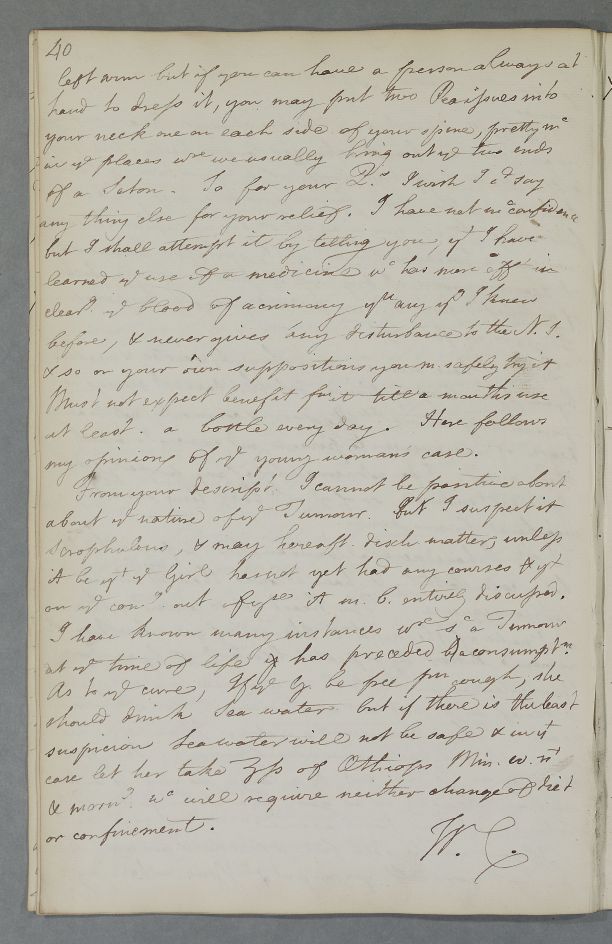 40
left arm but if you can have a person always at
hand to dress it, you may put two Pea issues into
your neck one on each side of your spine, pretty
in ye places wre we usually bring out ye two ends
of a Seton. So for your I wish I cd say
any thing else for your relief. I have not mc confidence
but I shall attempt it by telling you, yt I have
learned ye use of a medicine wc has more eff in
clear.g ye blood of acrimony yn any yt I knew
before, & never gives any disturbance to the N. S.
& so on your own suppositions you m. safely try it
Must not expect benefit fm it till a months use
at least. a bottle every day. Here follows
my opinion of ye young womans case.
From your descript. I cannot be positive about
about ye nature of ye Tumour. But I suspect it
Scrophulous, & may hereaft. disch matter, unless
it be yt ye Girl has not yet had any courses & yt
on ye com.g out of yse it m. b. entirely discussed.
I have known many instances wre sc a Tumour
at yt time of life has preceded a consumptn.
As to ye cure, If ye G. be free fm cough, she
should drink Sea water but if there is the least
suspicion Sea water will not be safe & in yt
case let her take ʒss of Æthiops Min. w. nt
& morn.g wc will require neither change of diet
or confinement.
W. C.